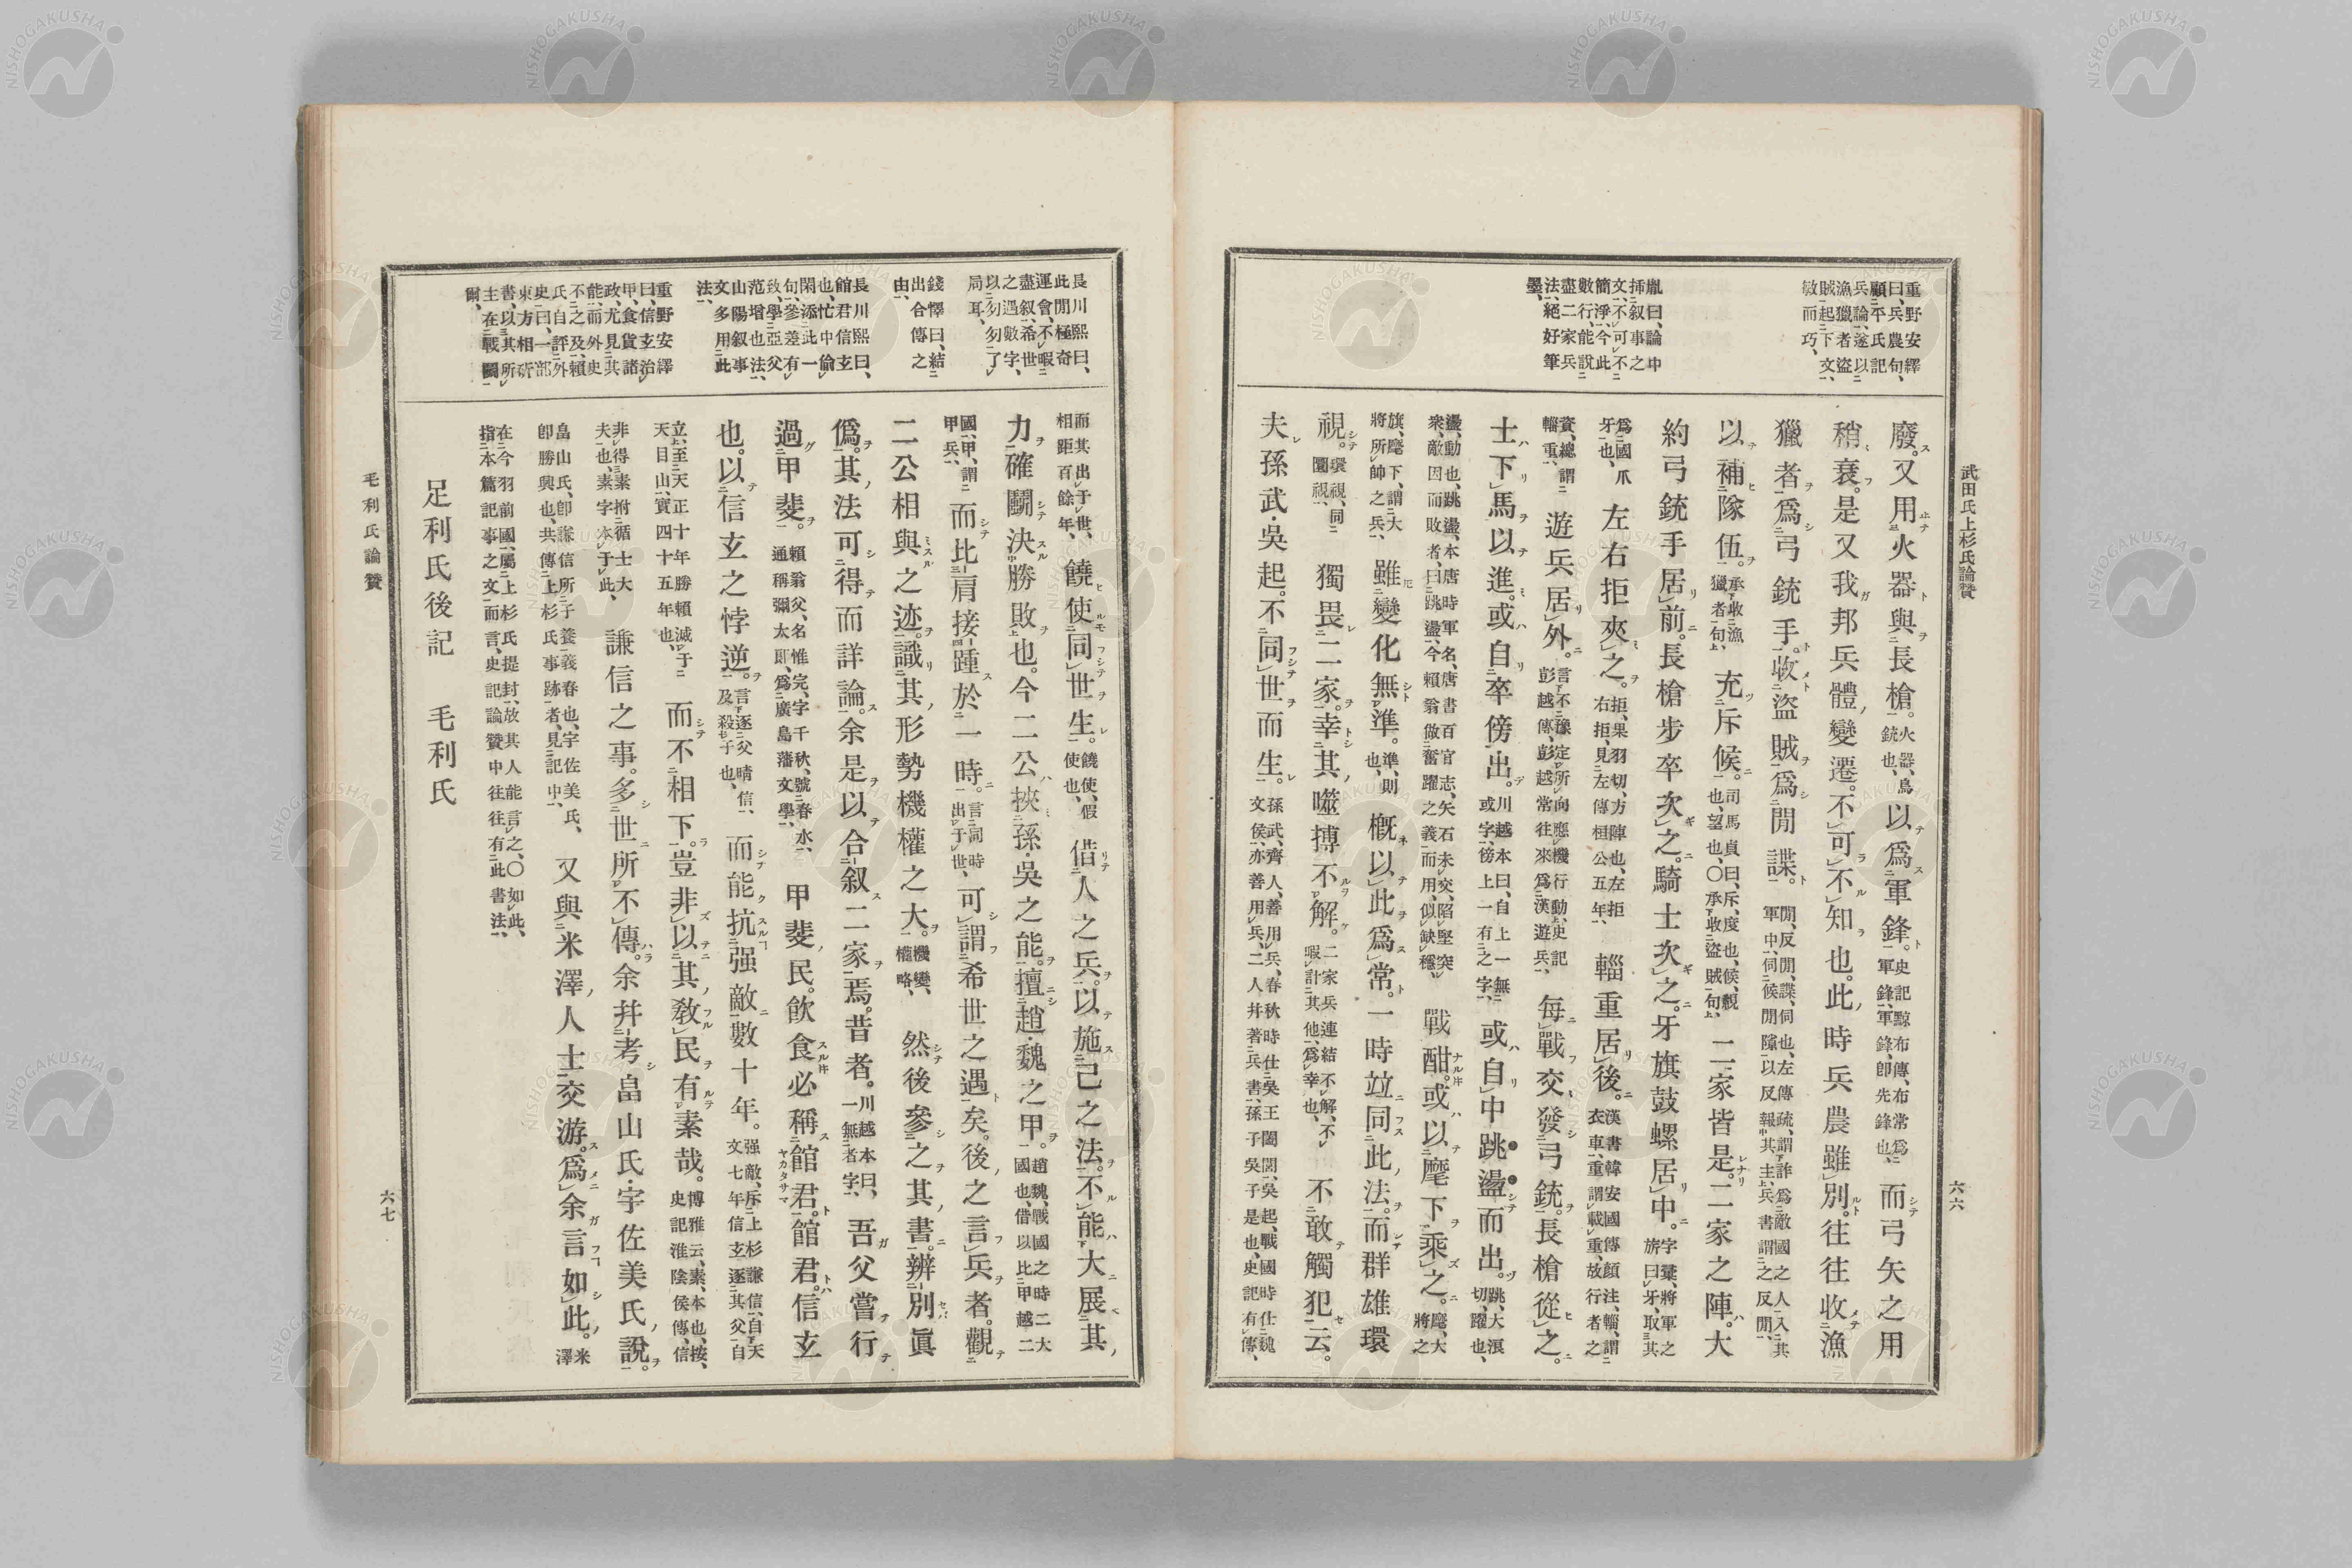 武田氏上杉氏論贊
六六
重野安繹
曰、兵農句、
顧平氏記
兵論、遂以
漁獵者盜
賊起下文、
敏而巧、
胤曰、論中
挿叙事之
文、不可不
簡淨、今此
數行、能說
盡二家兵
法、絕好筆
墨、
廢。又用火器與長槍。火器、鳥銃也、以爲軍鋒。史記黥布傳、布常爲軍鋒、軍鋒、卽先鋒也、而弓矢之用
稍衰。是又我邦兵體變遷。不可不知也。此時兵農雖別。往往收漁
獵者爲弓銃手。收盜賊爲閒諜。閒、反閒、諜、伺也、左傳疏、謂詐爲敵國之人、入其軍中、伺候閒隙、以反報其主、兵書謂之反閒、
以補隊伍。承收漁獵者句、充斥候。司馬貞曰、斥、度也、候、覬也、望也、〇承收盜賊句、二家皆是。二家之陣。大
約弓銃手居前。長槍步卒次之。騎士次之。牙旗鼓螺居中。字彙、將軍之旂曰牙、取其
爲國爪牙也、左右拒夾之。拒、果羽切、方陣也、左拒右拒、見左傳桓公五年、輜重居後。漢書韓安國傳顏注、輜、謂衣車、重謂載重、故行者之
資、總謂輜重、遊兵居外。言不豫定所向、應機行動、史記彭越傳、彭越常往來爲漢遊兵、每戰交發弓銃。長槍從之。
士下馬以進。或自卒傍出。川越本曰、自上一無或字、傍上一有之字、或自中跳盪而出。跳、大浪切、躍也、
盪、動也、跳盪、本唐時軍名、唐書百官志、矢石未交、陷堅突衆、敵因而敗者、曰跳盪、今賴翁倣奮躍之義而用、似缺穩、戰酣。或以麾下乘之。麾、大將之
旗、麾下、謂大將所帥之兵、雖變化無準。準、則也、槪以此爲常。一時竝同此法。而群雄環
視。環視、同圜視、獨畏二家。幸其噬搏不解。二家兵連結不解、不暇計其他、爲幸也、不敢觸犯云。
夫孫武・吳起。不同世而生。孫武、齊人、善用兵、春秋時仕吳王闔閭、吳起、戰國時仕魏文侯、亦善用兵、二人幷著兵書、孫子吳子是也、史記有傳、
長川熙曰、
此閒極奇
運會、不暇
盡叙、希世
之遇數字、
以匆匆了
局耳、
錢懌曰、結
出合傳之
由、
長川熙曰、
館君信玄
也、忙中偸
閑、添此一
句、參差有
致、學亞父
范增也法、
山陽叙事
文、多用此
法、
重野安繹
曰、信玄治
甲、食貨諸
政、尤見其
能、而外史
不之及、賴
氏自評外
史曰、一部
東方相斫
書、以其所
主在戰鬪
爾、
而其出于世、相距百餘年、饒使同世生。饒使、假使也、借人之兵。以施己之法。不能大展其
力確鬪決勝敗也。今二公挾孫・吳之能。擅趙・魏之甲。趙魏、戰國之時二大國也、借以比甲越二
國、甲、謂甲兵、而比肩接踵於一時。言同時出于世、可謂希世之遇矣。後之言兵者。觀
二公相與之迹。識其形勢機權之大。機變、權略、然後參之其書。辨別眞
僞。其法可得而詳論。余是以合叙二家焉。昔者。川越本曰、一無者字、吾父嘗行
過甲斐。賴翁父、名惟完、字千秋、號春水、通稱彌太郎、爲廣島藩文學、甲斐民。飮食必稱館君。館君。信玄
也。以信玄之悖逆。言逐父晴信、及殺子也、而能抗强敵數十年。强敵、斥上杉謙信、自天文七年信玄逐其父自
立、至天正十年勝賴滅于天目山、實四十五年也、而不相下。豈非以其敎民有素哉。博雅云、素、本也、按、史記淮陰侯傳、信
非得素拊循士大夫也、素字本于此、謙信之事。多世所不傳。余幷考畠山氏・宇佐美氏說。
畠山氏、卽謙信所子養義春也、宇佐美氏、卽勝興也、共傳上杉氏事跡者、見記中、又與米澤人士交游。爲余言如此。米澤
在今羽前國、屬上杉氏提封、故其人能言之、〇如此、指本篇記事之文而言、史記論贊中往往有此書法、
足利氏後記　毛利氏
毛利氏論贊
六七